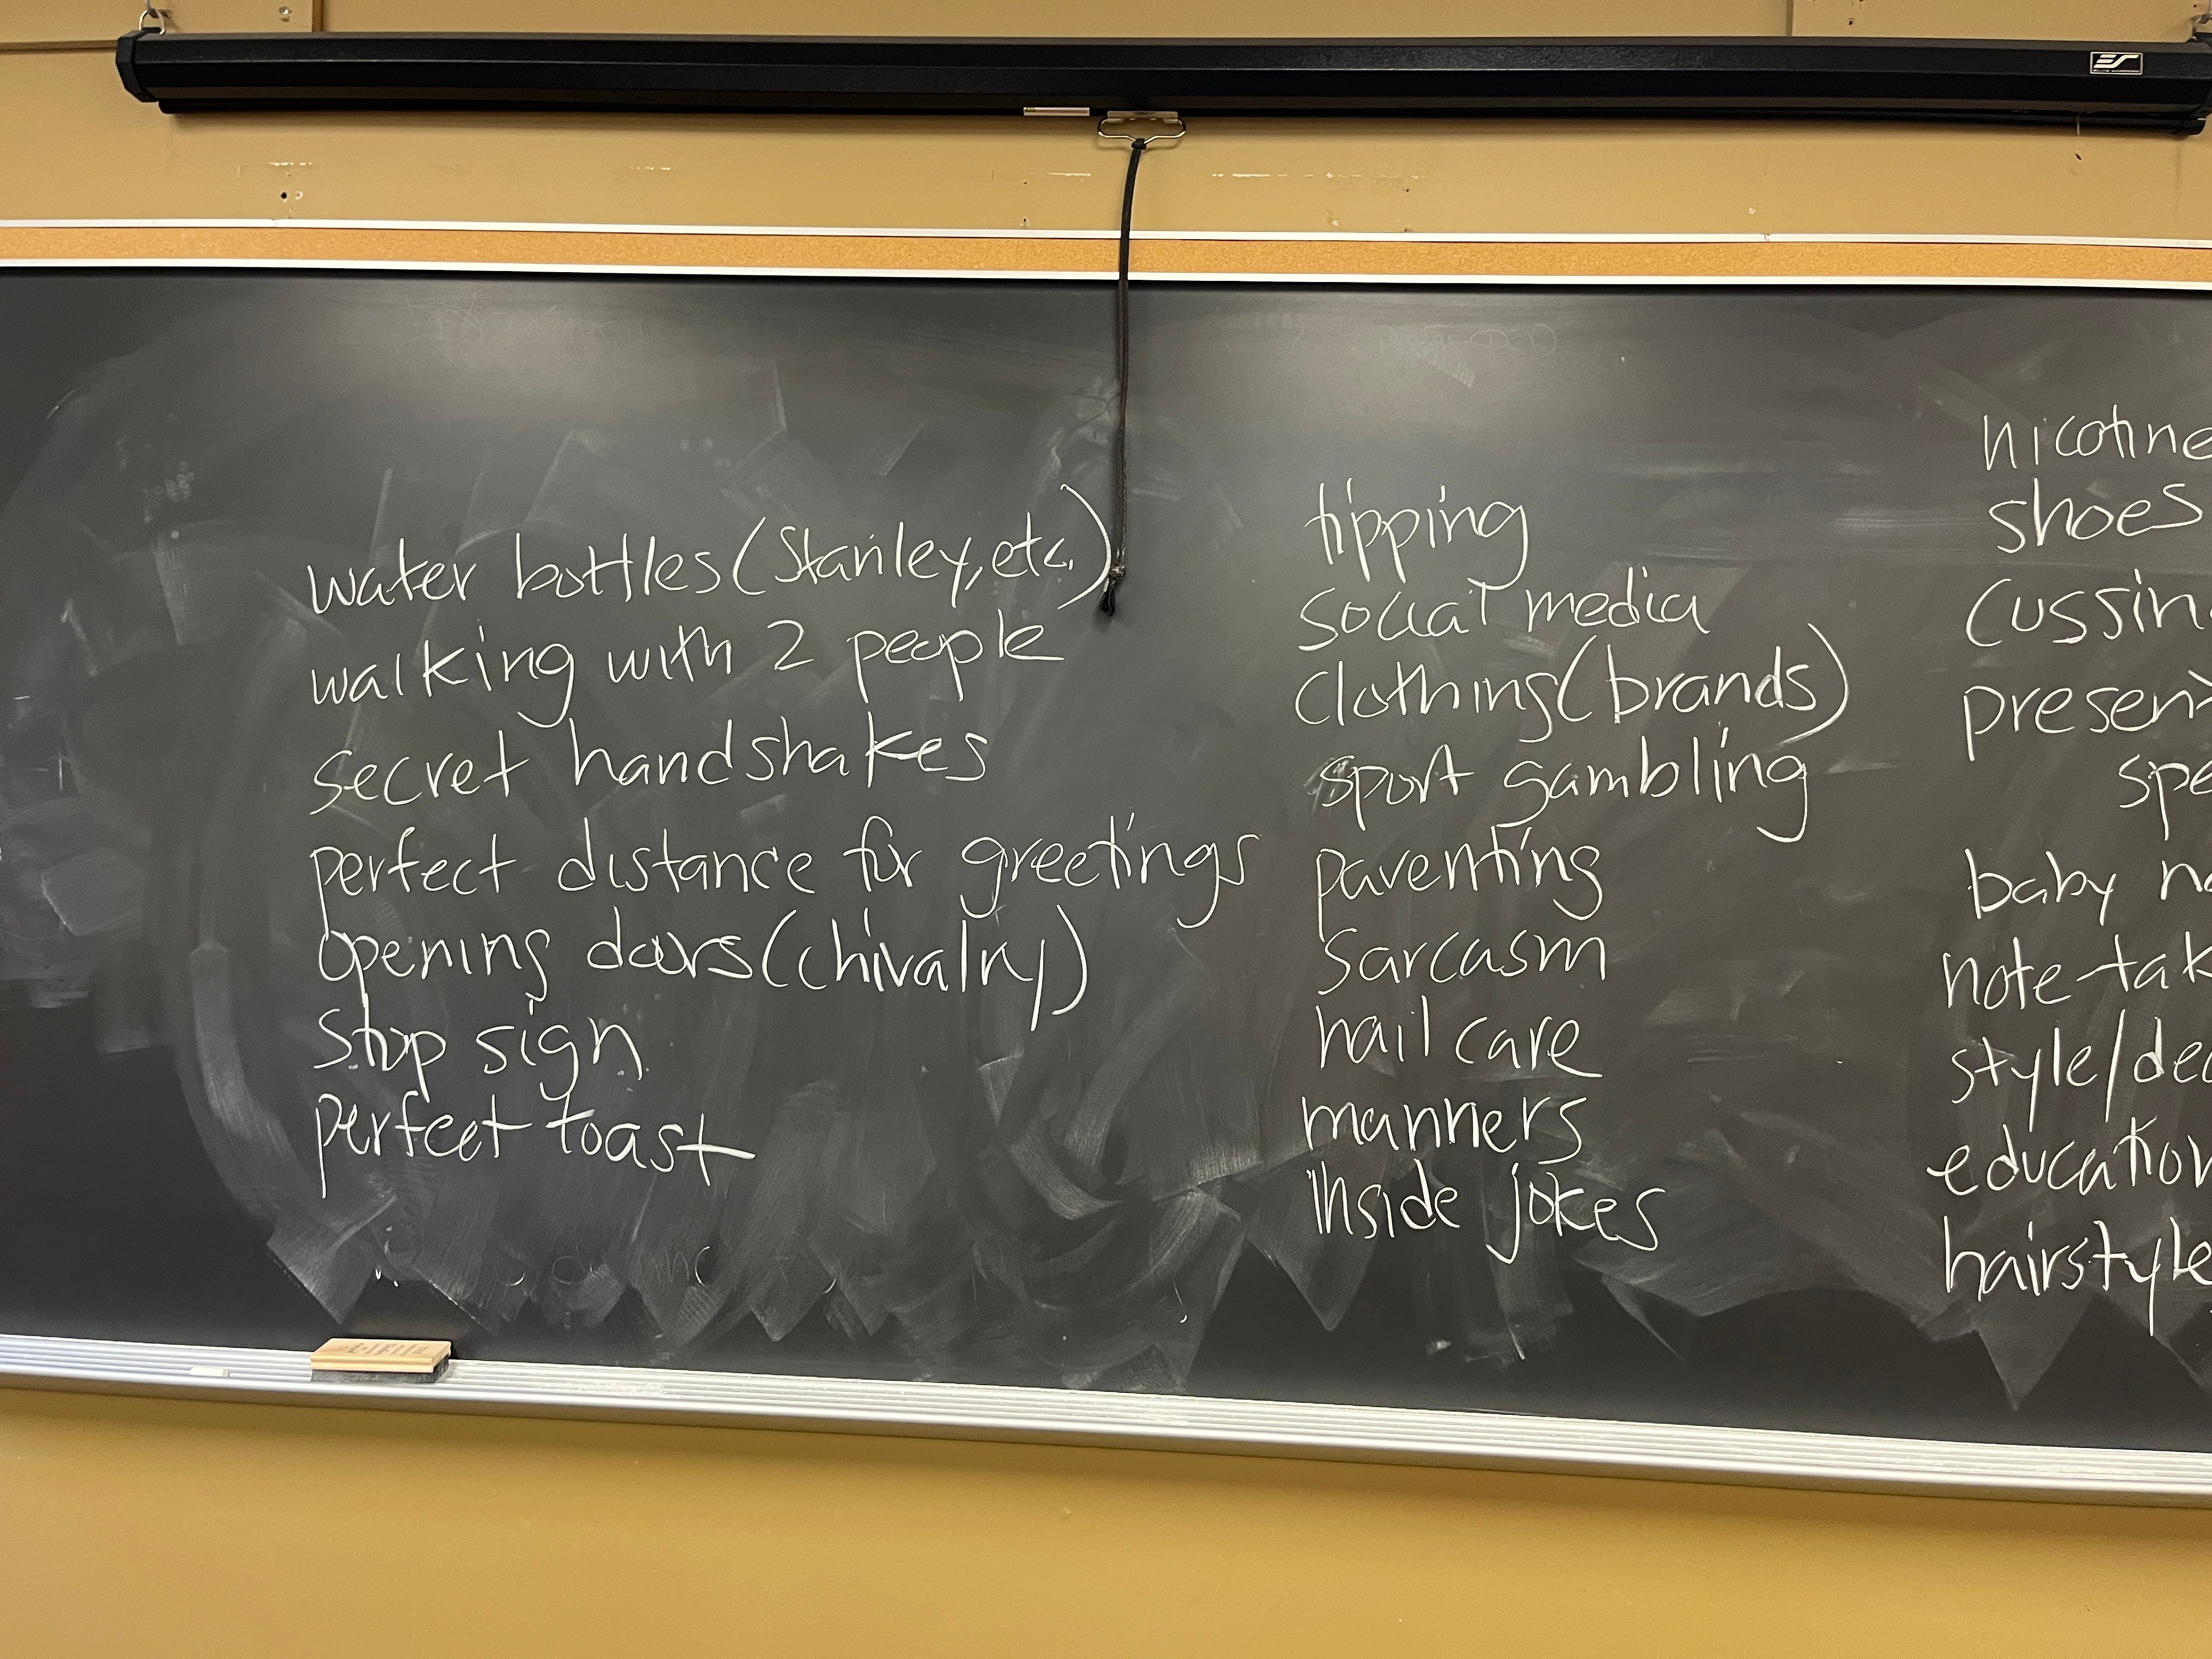 water bottles (Stanley, etc.)
walking with 2 people
secret handshakes
perfect distance for greetings
opening doors (chivalry)
Stop sign
perfect toast
tipping
social media
clothing (brands)
sport gambling
parenting
Sarcasm
nail care
manners
inside jokes
nicotine
shoes
cussin
presen
spe
baby na
note-tak
style/dec
education
hairstyle
ES